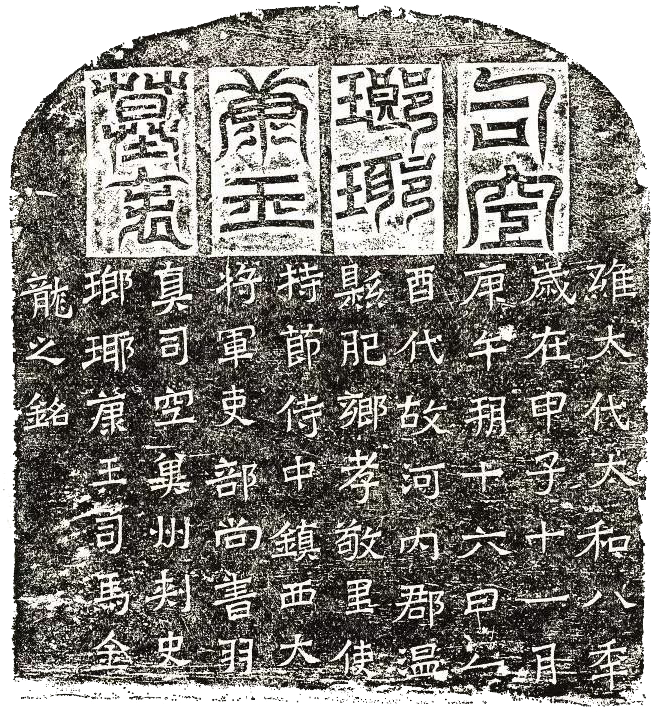 司空
瑯琊
康王
墓表
維大代大和八年
歲在甲子十一月
庚午朔十六日乙
酉代故河内郡温
縣肥鄉孝敬里使
持節侍中鎮西大
將軍吏部尚書羽
真司空冀州刺史
瑯琊康王司馬金
龍之銘